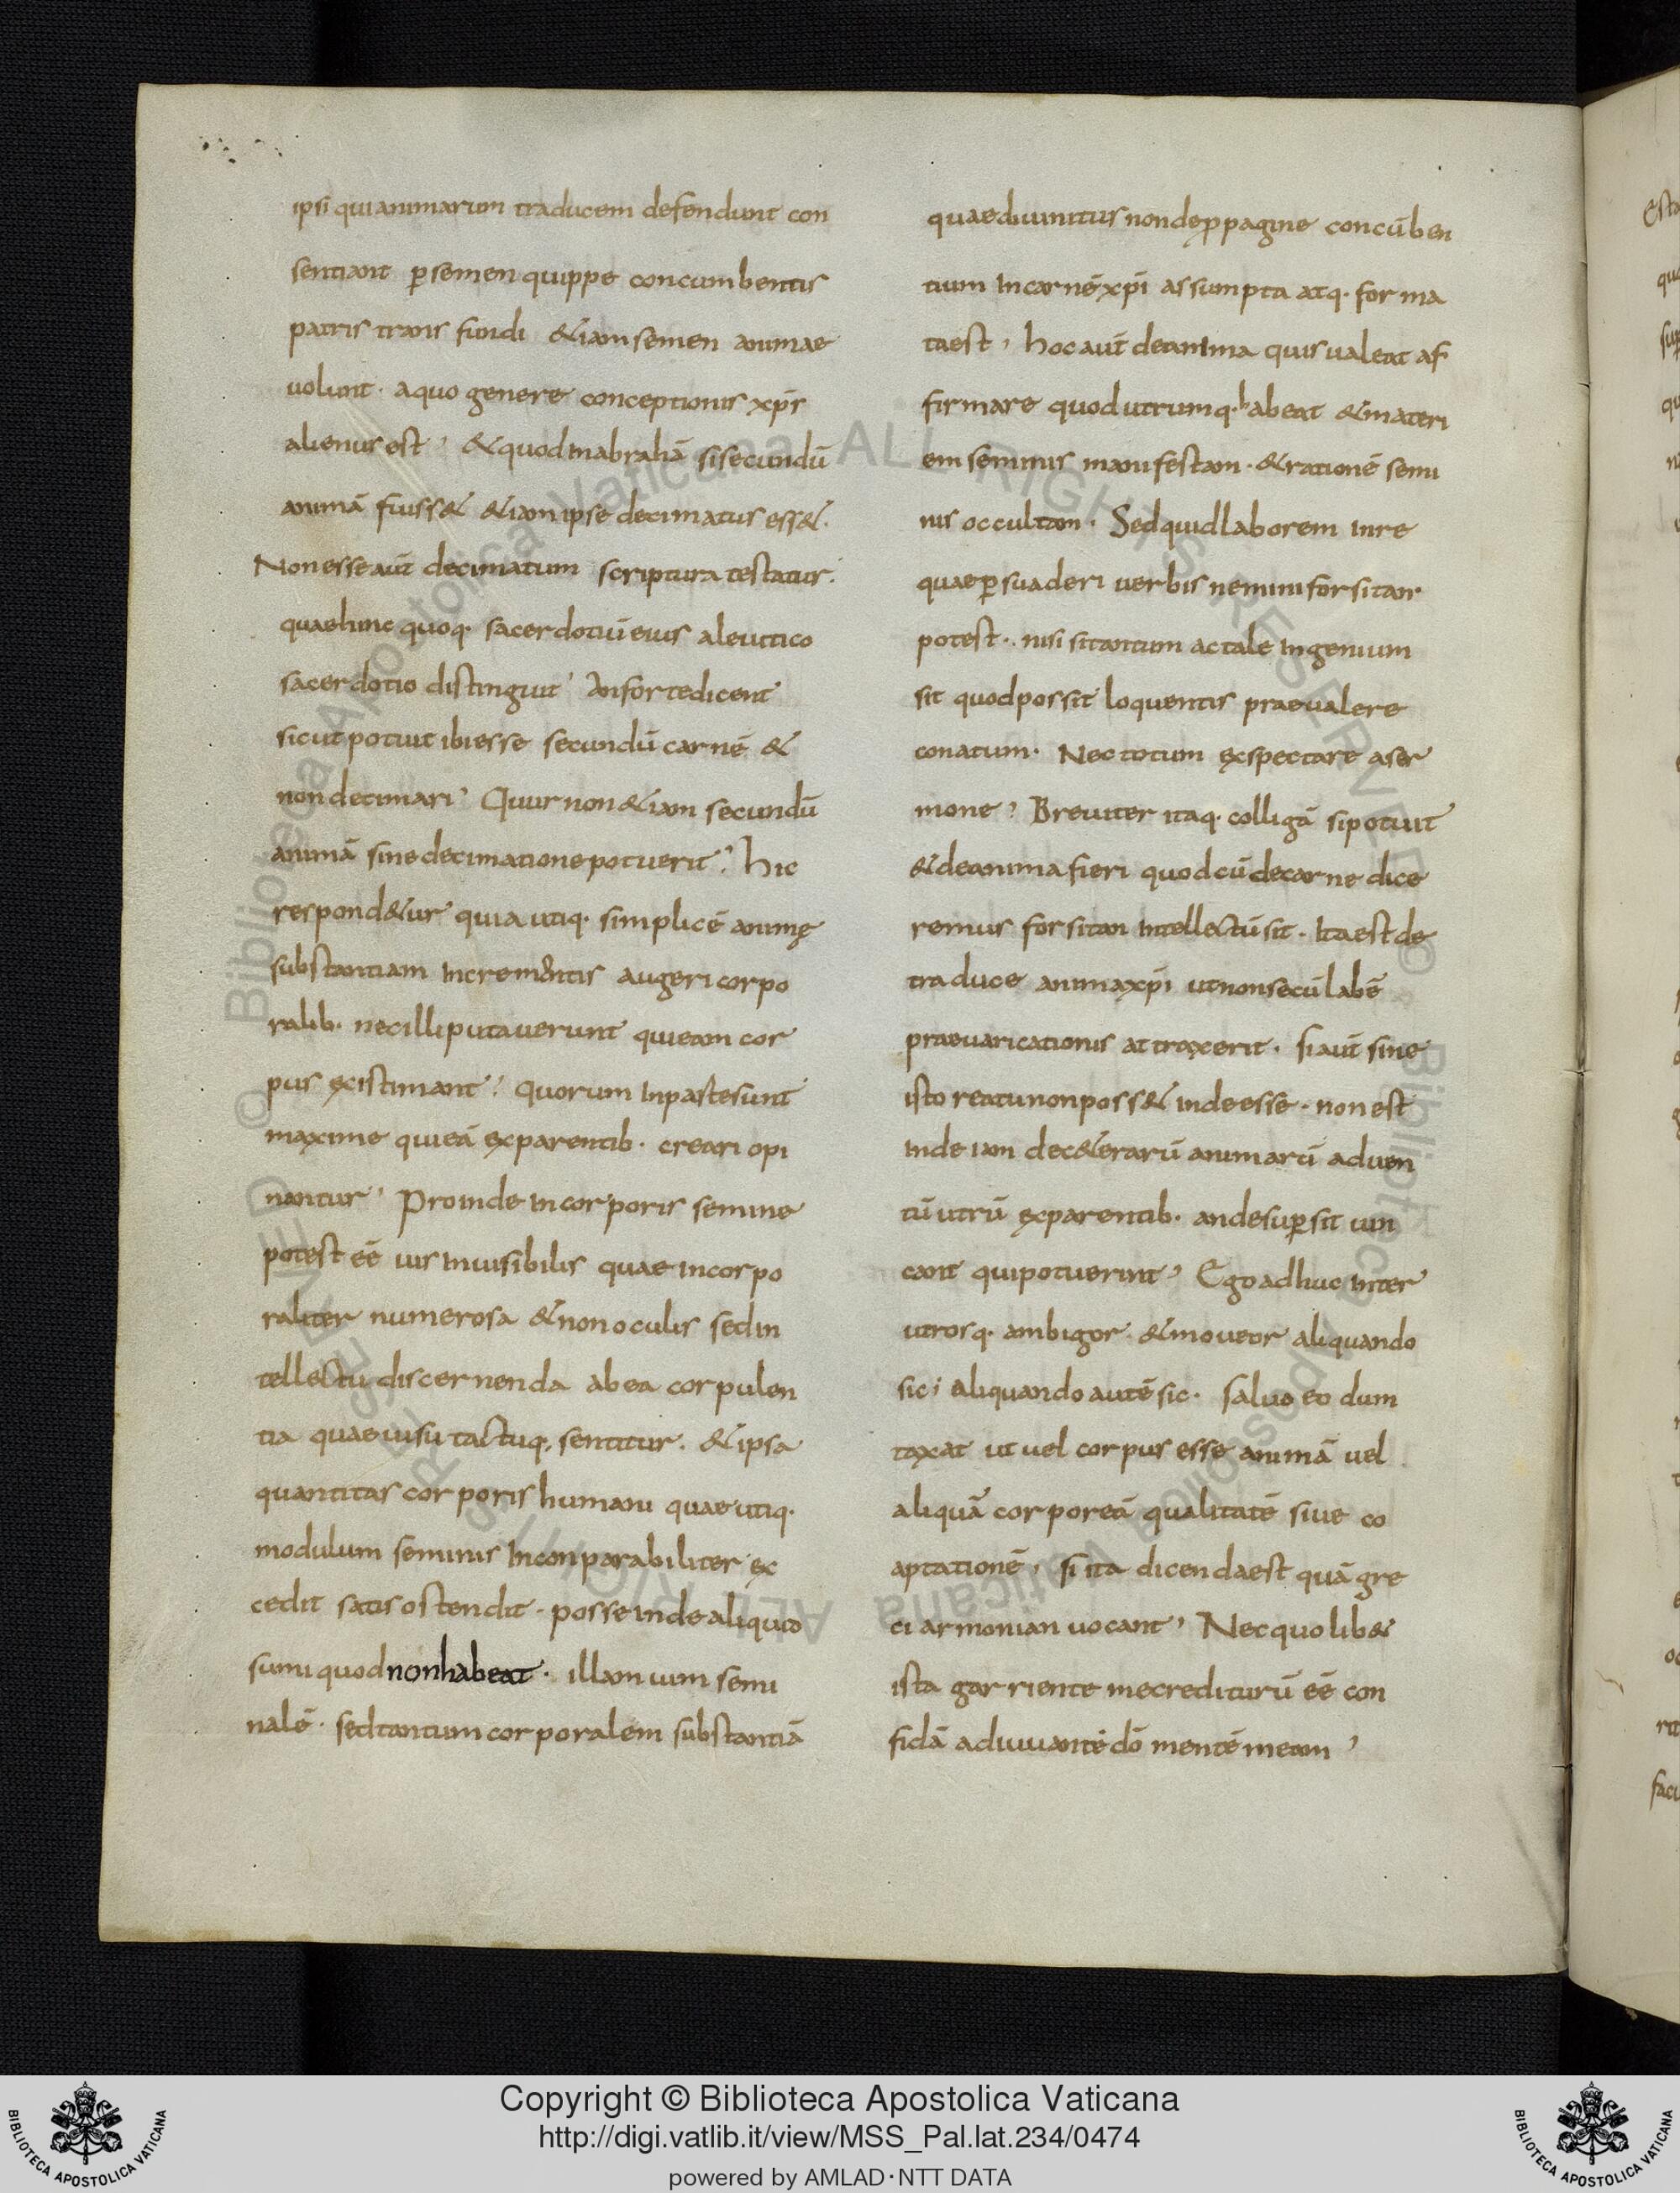 ipsi qui animarum traducem defendunt con
sentiant ꝑ semen quippe concumbentis
patris trans fundi &iam semen animae
uolunt · a quo genere conceptionis xp̄s
alienus est , & quod inabrahā si secundū
animā fuiss& &iam ipse decimatus ess& ·
Non esse aut̄ decimatum scriptura testatur ·
quae hinc quoq· sacerdotiū eius aleuitico
sacerdotio distinguit , An forte dicent
sicut potuit ibi esse secundū carnē &
non decimari , Quur non &iam secundū
animā sine decimatione potuerit ? hic
respond&ur quia utiq· simplicē animę
substantiam incrementis augeri corpo
ralib· nec illi putauerunt qui eam cor
pus existimant ; quorum inparte sunt
maxime qui eā ex parentib· creari opi
nantur , Proinde in corporis semine
potest eē uis inuisibilis quae incorpo
raliter numerosa & non oculis sed in
tellectu discernenda ab ea corpulen
tia quae uisu tactuq· sentitur · & ipsa
quantitas corporis humani quae utiq·
modulum seminis inconparabiliter ex
cedit satis ostendit · posse inde aliquid
sumi quod non habeat · illam uim semi
nalē · sed tantum corporalem substantiā
quae diuinitus non de ꝓpagine concūben
tium in carnē xp̄i assumpta atq· forma
ta est , hoc aut̄ de anima quis ualeat af
firmare quod utrumq· habeat & materi
em seminis manifestam · & rationē semi
nis occultam · Sed quid laborem inre
quae ꝑsuaderi uerbis nemini forsitan
potest · nisi si tantum ac tale ingenium
sit quod possit loquentis praeualere
conatum · Nec totum exspectare aser
mone , Breuiter itaq· colligā si potuit
& de anima fieri quod cū de carne dice
remus forsitan intellectū sit · Ita est de
traduce anima xp̄i ut non secū labē
praeuaricationis attraxerit · si aut̄ sine
isto reatu non poss& inde esse · non est
inde iam de c&erarū animarū aduen
tū utrū ex parentib· an desuꝑ sit uin
cant qui potuerint , Ego adhuc inter
utrosq· ambigor · & moueor aliquando
sic ; aliquando autē sic · saluo eo dum
taxat ut uel corpus esse animā uel
aliquā corporeā qualitatē siue co
aptationē , si ita dicenda est quā gre
ci armonian uocant , Nec quolib&
ista garriente me crediturū eē con
fidā adiuuante dō mentē meam ,
Copyright © Biblioteca Apostolica Vaticana
http://digi.vatlib.it/view/MSS_Pal.lat.234/0474
powered by AMLAD·NTT DATA
BIBLIOTECA APOSTOLICA VATICANA
BIBLIOTECA APOSTOLICA VATICANA